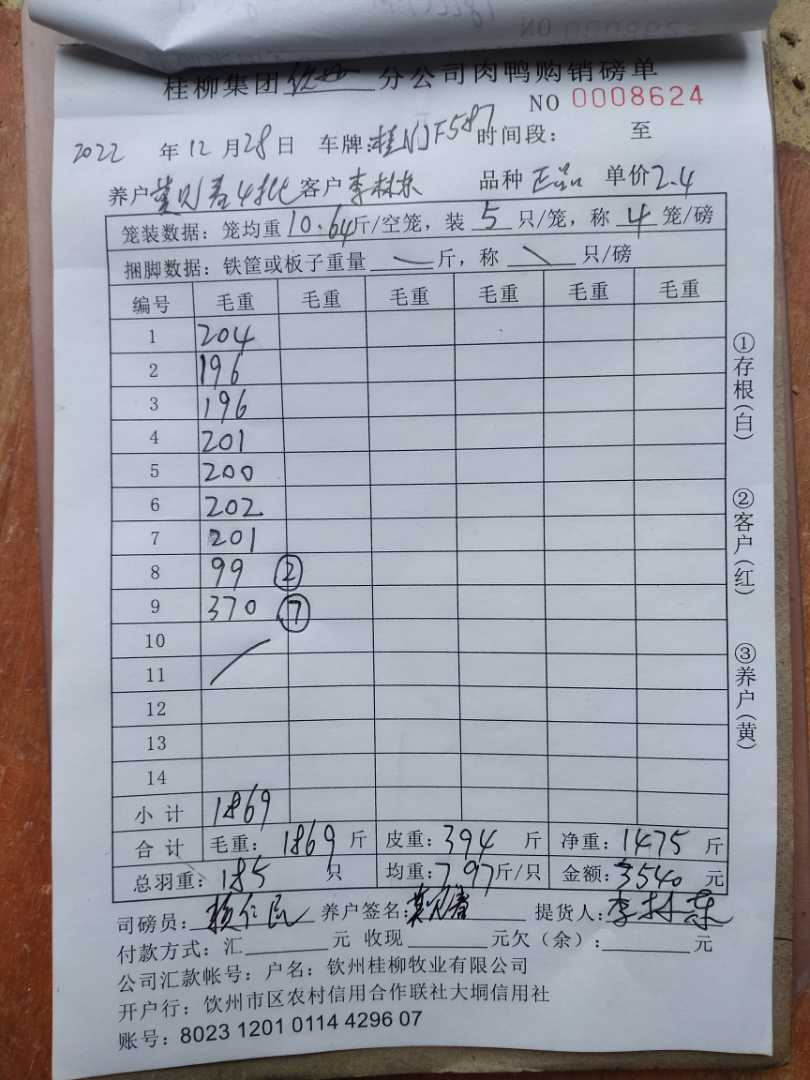 桂柳集团钦州分公司肉鸭购销磅单
NO 0008624
2022 年 12 月 28 日 车牌:桂NJF587 时间段: 至
养户 黄见春4批 客户 李林东 品种 正品 单价 2.4
笼装数据: 笼均重 10.64 斤/空笼, 装 5 只/笼, 称 4 笼/磅
捆脚数据: 铁筐或板子重量 斤, 称 只/磅
编号 毛重 毛重 毛重 毛重 毛重 毛重
1 204
2 196
3 196
4 201
5 200
6 202
7 201
8 99 ②
9 370 ⑦
10
11
12
13
14
小计 1869
合计 毛重: 1869 斤 皮重: 394 斤 净重: 1475 斤
总羽重: 185 只 均重: 7.97 斤/只 金额: 3540 元
司磅员: 养户签名: 黄见春 提货人: 李林东
付款方式: 汇 元 收现 元欠(余): 元
公司汇款帐号: 户名: 钦州桂柳牧业有限公司
开户行: 钦州市区农村信用合作联社大垌信用社
账号: 8023 1201 0114 4296 07
①存根(白)
②客户(红)
③养户(黄)